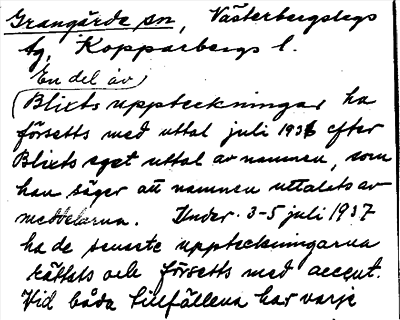 Grangärde sn, Västerbergslags
tg, Kopparbergs l.
En del av
Blixts uppteckningar ha
försetts med uttal juli 1936 efter
Blixts eget uttal av namnen, som
han säger att namnen uttalets av
meddelarna. Under 3-5 juli 1937
ha de senaste uppteckningarna
rättats och försetts med accent.
Vid båda tillfällena har varje